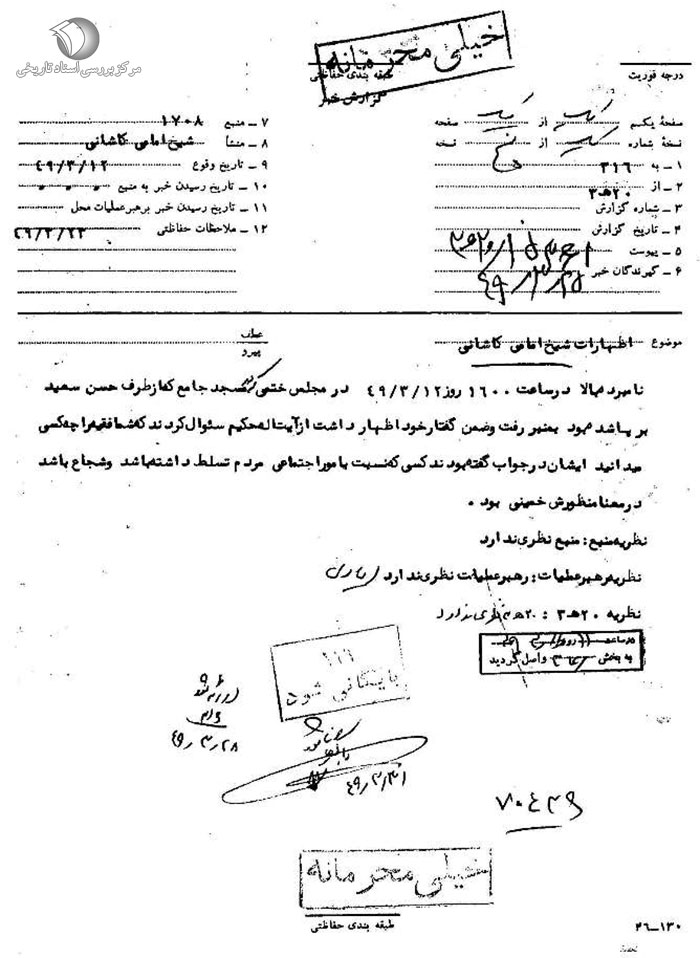 مرکز بررسی اسناد تاریخی
خیلی محرمانه
درجه فوریت
طبقه بندی حفاظتی
گزارش خبر
صفحه یکم یک از یک صفحه
نسخه شماره یک از نسخه
۱ ـ به ۳۱۶
۲ ـ از ۲۰ هـ ۳
۳ ـ شماره گزارش
۴ ـ تاریخ گزارش
۵ ـ پیوست
۶ ـ گیرندگان خبر
۷ ـ منبع ۱۷۰۸
۸ ـ منشأ شیخ امامی کاشانی
۹ ـ تاریخ وقوع ۴۹/۳/۱۲
۱۰ ـ تاریخ رسیدن خبر به منبع
۱۱ ـ تاریخ رسیدن خبر برهبر عملیات محل
۱۲ ـ ملاحظات حفاظتی ۴۹/۳/۲۳
موضوع اظهارات شیخ امامی کاشانی
عطف
پیرو
نامبرده بالا در ساعت ۱۶۰۰ روز ۴۹/۳/۱۲ در مجلس ختمی که در مسجد جامع که از طرف حسن سعید
بر پا شده بود بمنبر رفت و ضمن گفتار خود اظهار داشت از آیت اله حکیم سئوال کردند که شما فقیه را چه کسی
میدانید ایشان در جواب گفته بودند کسی که نسبت بامور اجتماعی مردم تسلط داشته باشد و شجاع باشد
در معنا منظورش خمینی بود .
نظریه منبع : منبع نظری ندارد
نظریه رهبر عملیات : رهبر عملیات نظری ندارد
نظریه ۲۰ هـ ۳ : ۲۰ هـ ۳ نظری ندارد
در ساعت روز
به بخش ۳۱۶ واصل گردید
بایگانی شود
۴۹/۳/۲۸
۴۹/۳/۳۱
۷۰۴۳۹
خیلی محرمانه
طبقه بندی حفاظتی
۲۶ــ۱۳۰